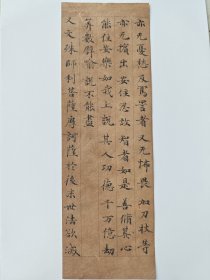 亦无憂愁及罵詈者又无怖畏加刀杖等
亦无擯出安住忍故智者如是善脩其心
能住安樂如我上說其人功德千万億劫
筭數譬喻說不能盡
又文殊師利菩薩摩訶薩於後末世法欲滅